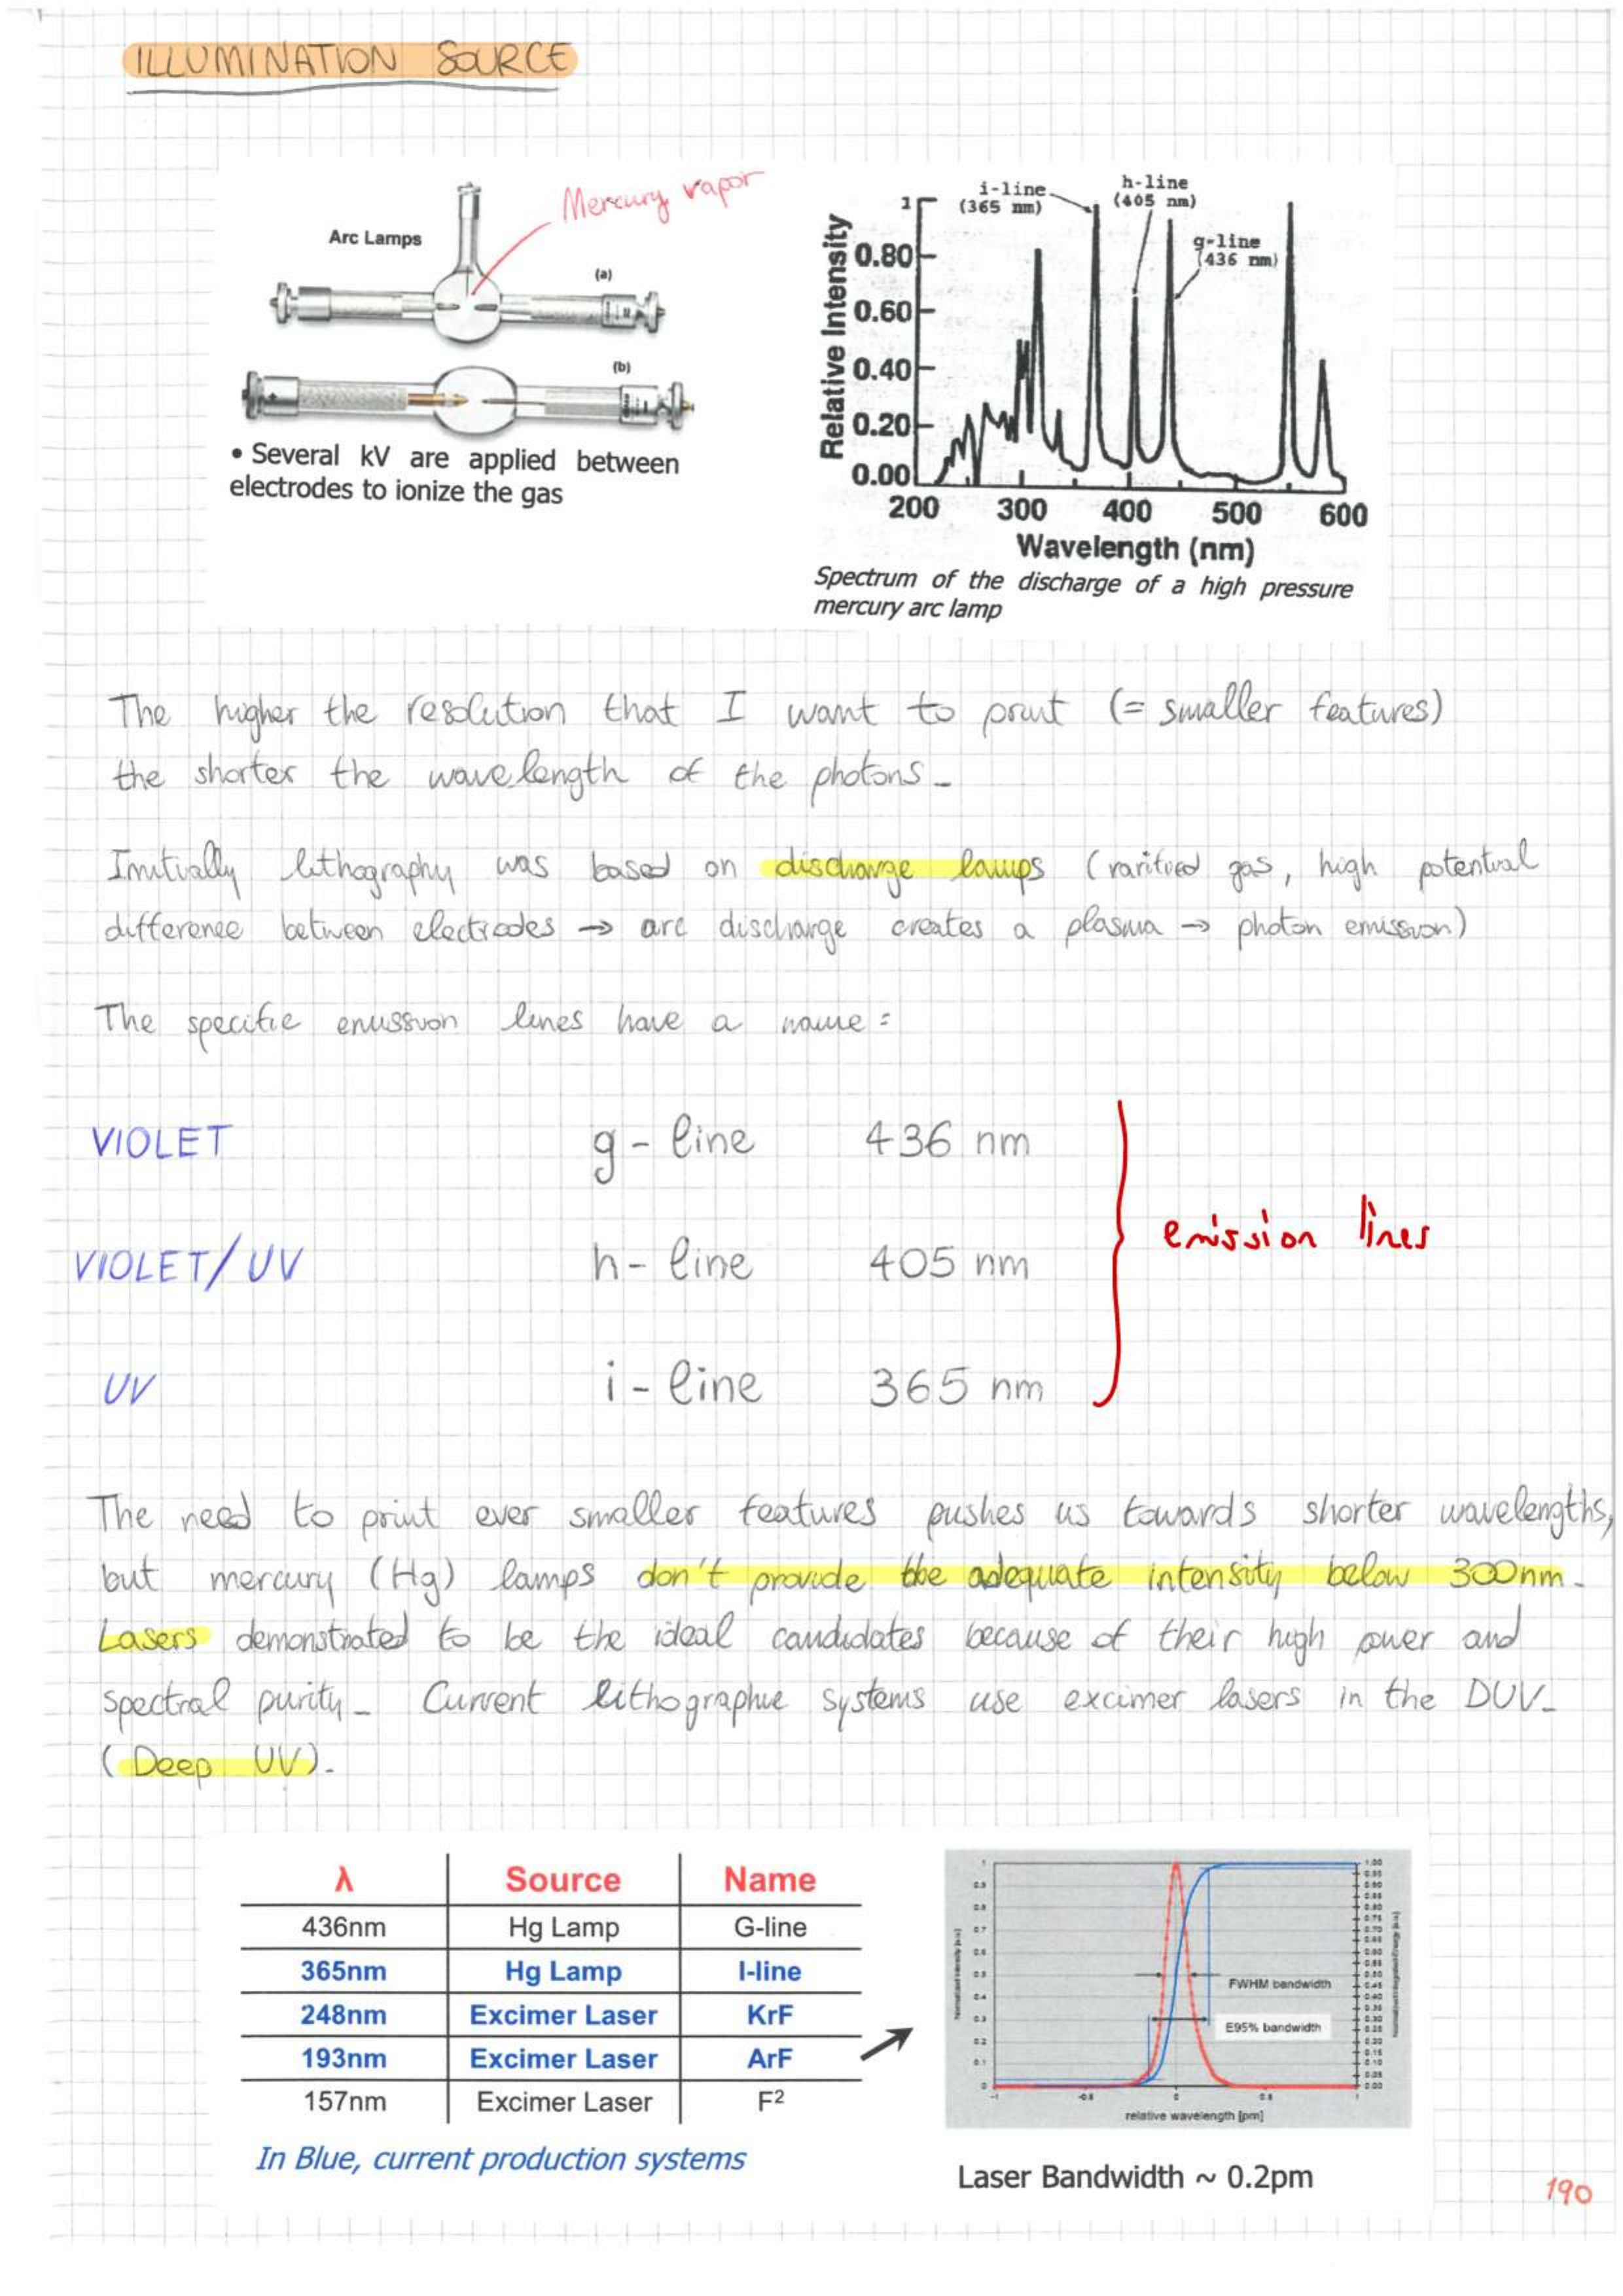 ILLUMINATION SOURCE
Mercury vapor
Arc Lamps
(a)
(b)
• Several kV are applied between
electrodes to ionize the gas
i-line
(365 nm)
h-line
(405 nm)
g-line
(436 nm)
Relative Intensity
1
0.80
0.60
0.40
0.20
0.00
200 300 400 500 600
Wavelength (nm)
Spectrum of the discharge of a high pressure
mercury arc lamp
The higher the resolution that I want to print (= smaller features)
the shorter the wavelength of the photons.
Initially lithography was based on discharge lamps (rarified gas, high potential
difference between electrodes → arc discharge creates a plasma → photon emission)
The specific emission lines have a name:
VIOLET g - line 436 nm
VIOLET/UV h - line 405 nm
emission lines
UV i - line 365 nm
The need to print ever smaller features pushes us towards shorter wavelengths,
but mercury (Hg) lamps don't provide the adequate intensity below 300nm.
Lasers demonstrated to be the ideal candidates because of their high power and
spectral purity. Current lithographic systems use excimer lasers in the DUV.
(Deep UV).
λ Source Name
436nm Hg Lamp G-line
365nm Hg Lamp I-line
248nm Excimer Laser KrF
193nm Excimer Laser ArF
157nm Excimer Laser F2
In Blue, current production systems
FWHM bandwidth
E95% bandwidth
relative wavelength [pm]
Laser Bandwidth ~ 0.2pm
190